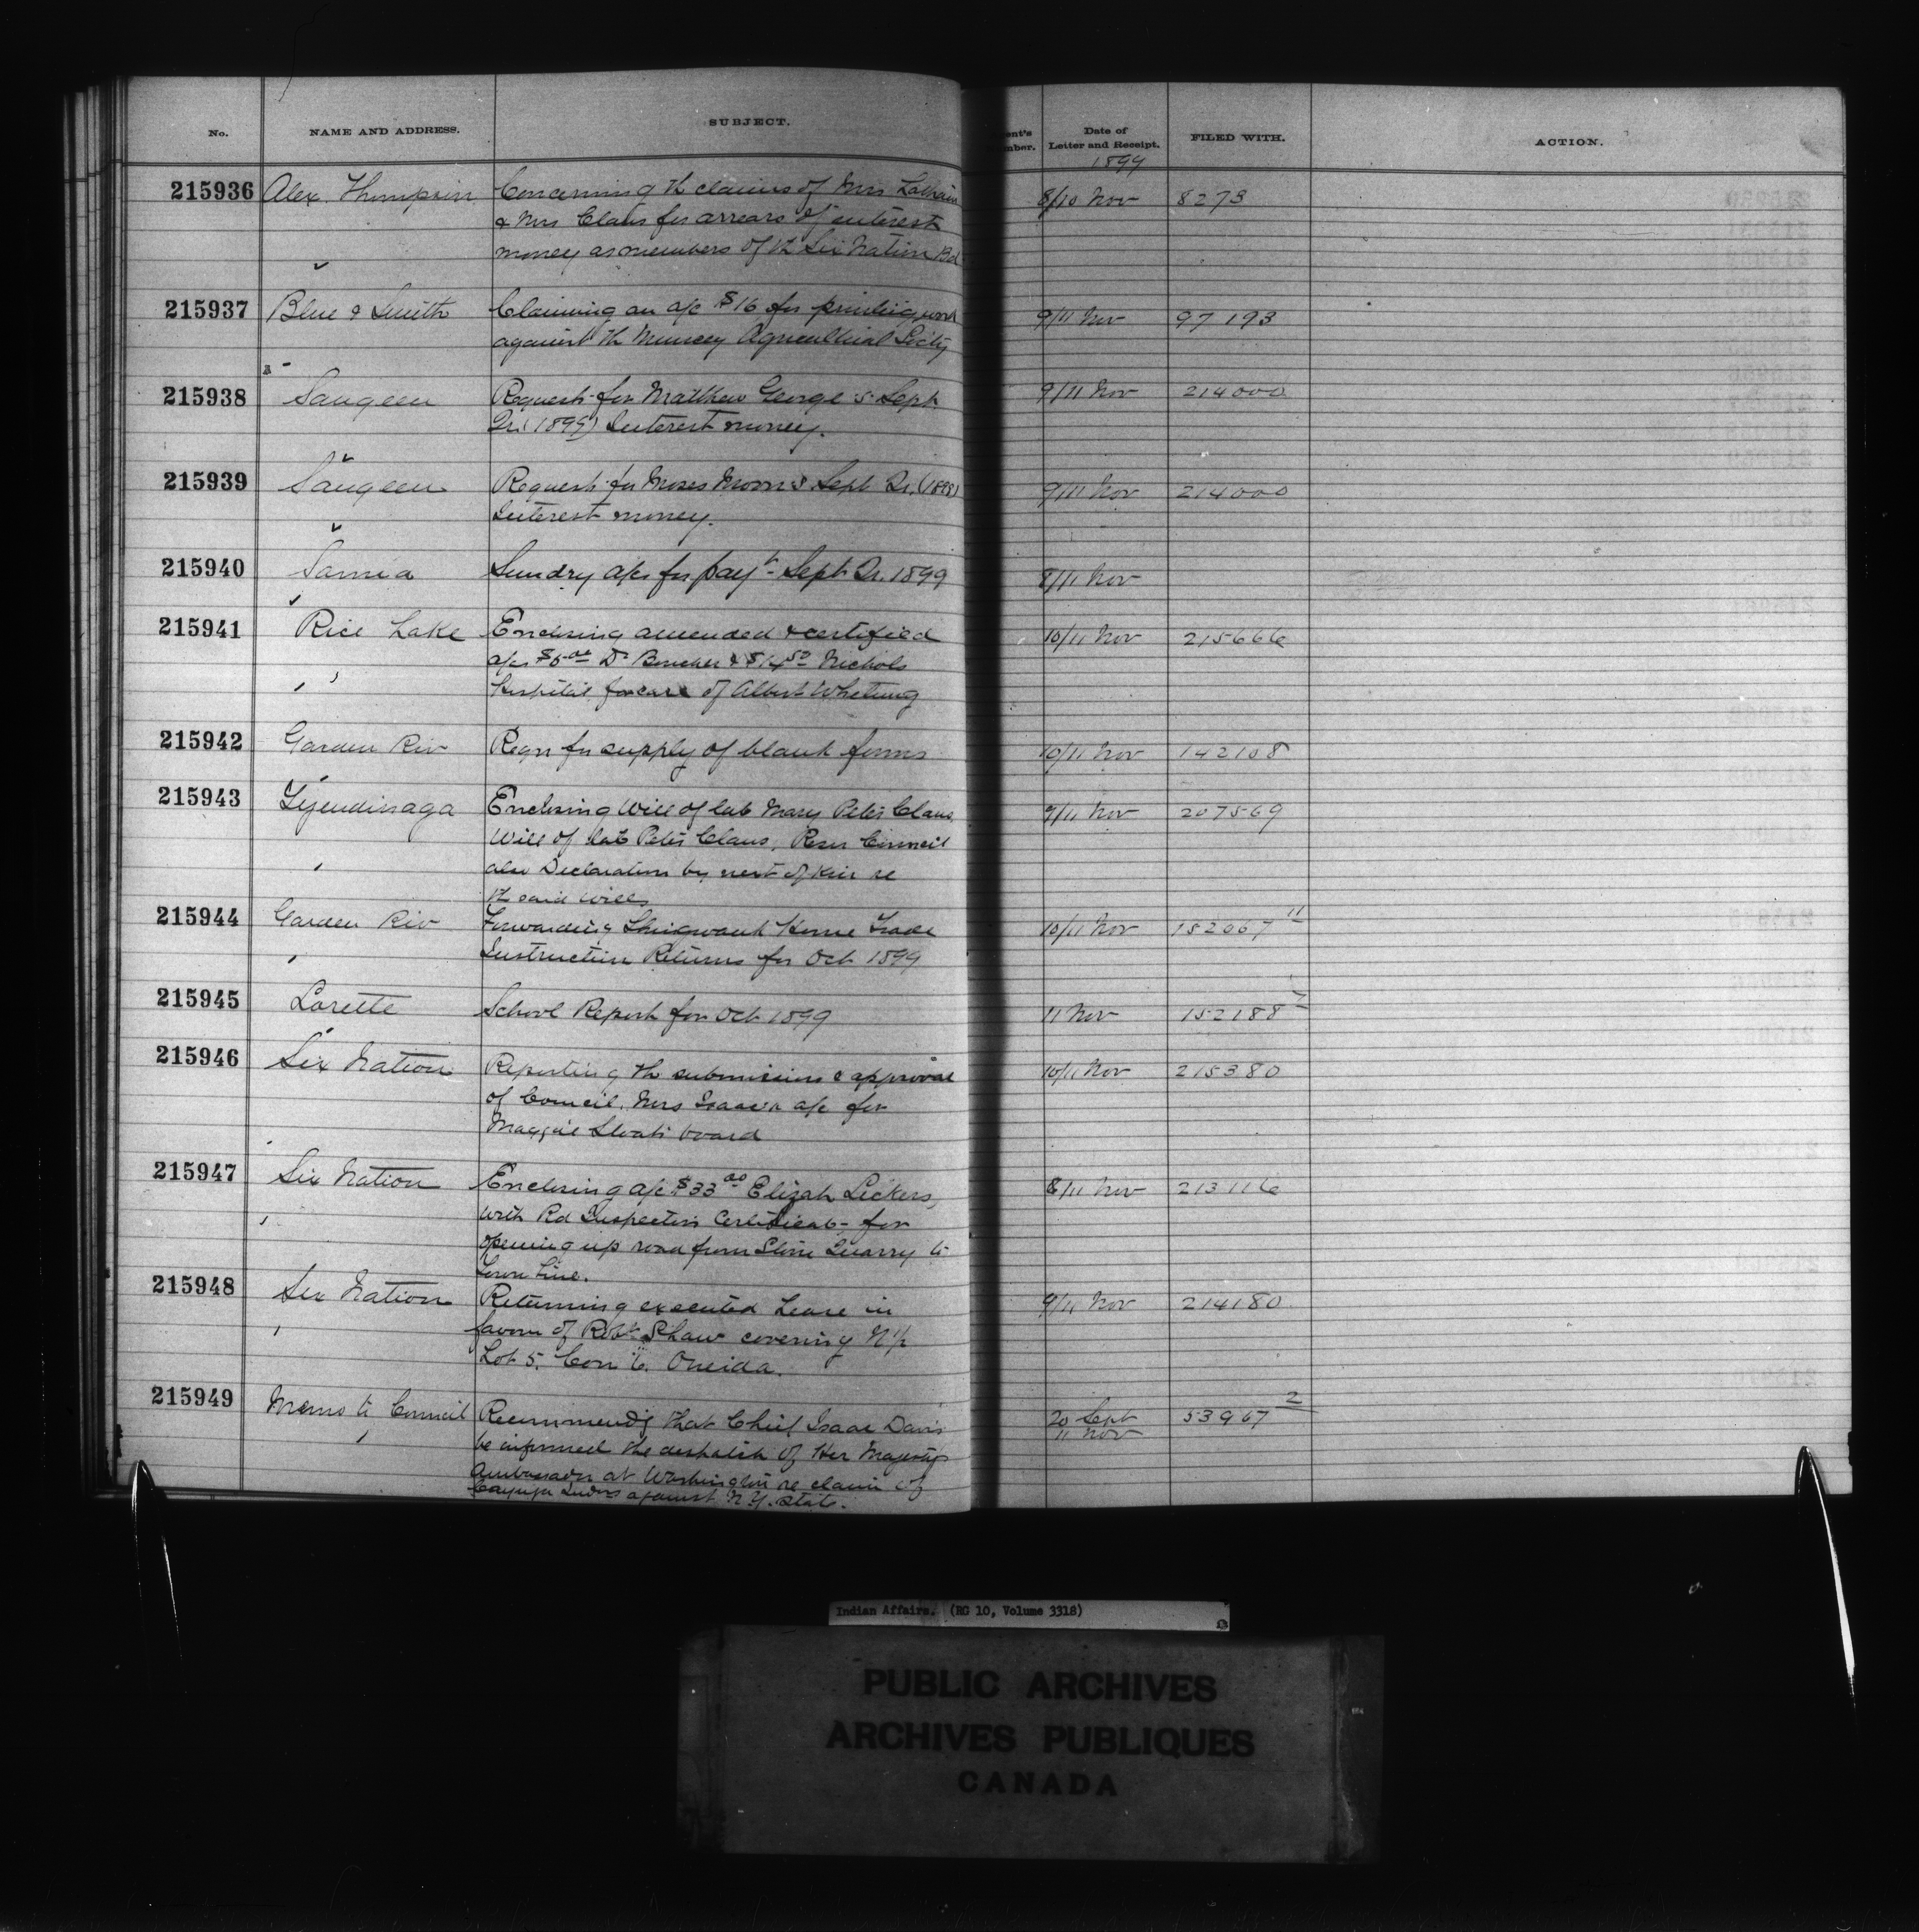 No.
NAME AND ADDRESS.
SUBJECT.
ent's
mber.
Date of
Letter and Receipt.
1899
FILED WITH.
ACTION.
215936 Alex. Thompson Concerning th claims of Mrs 8/10 Nov 8273
& Mrs Claus for arrears of interest
money as members of th Six Nation Bd
215937 Blue & Smith Claiming an a/c $16 for printing work 9/11 Nov 97193
against th Muncey Agricultural Socity
215938 Saugeen Request for Matthew George's Sept 9/11 Nov 214000
Qr. (1899) Interest money.
215939 Saugeen Request for Moses Moon's Sept Qr. (1898) 9/11 Nov 214000
Interest money.
215940 Sarnia Sundry a/cs for payt Sept Qr. 1899 8/11 Nov
215941 Rice Lake Enclosing amended & certified 10/11 Nov 215666
a/cs $5.00 Dr Boucher & $14.50 Nichols
Hospital for care of Albert Whetung
215942 Garden Riv Reqn for supply of blank forms 10/11 Nov 142108
215943 Tyendinaga Enclosing Will of late Mary Peter Claus, 9/11 Nov 207569
Will of late Peter Claus, Resn Council
also Declaration by next of kin re
th said wills
215944 Garden Riv Forwarding Shingwauk Home Trade 10/11 Nov 152067 11
Instruction Returns for Oct 1899
215945 Lorette School Report for Oct 1899 11 Nov 152188 7
215946 Six Nation Reporting th submission & approval 10/11 Nov 215380
of Council, Mrs Isaac's a/c for
Maggie Sloats board
215947 Six Nation Enclosing a/c $33.00 Elijah Lickers, 8/11 Nov 213116
with Rd Inspectors Certificate for
opening up road from Stone Quarry to
Town Line.
215948 Six Nation Returning executed Lease in 9/11 Nov 214180
favour of Robt Shaw covering N ½
Lot 5. Con 6. Oneida.
215949 Memo to Council Recommends that Chief Isaac Davis 20 Sept 53967 2
11 Nov
be informed the despatch of Her Majestys
Ambassador at Washington re claim of
Cayuga Indns against N.Y. State.
Indian Affairs. (RG 10, Volume 3318)
PUBLIC ARCHIVES
ARCHIVES PUBLIQUES
CANADA